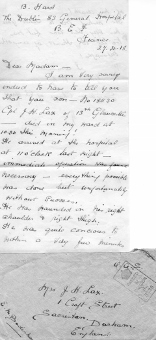 13. Ward
The Dublin 83 General Hospital
B. E. F.
France
27.10.18
Dear Madam
I am very sorry
indeed to have to tell you
that your son
Cpl J H Lax of 13
died in my ward at
10.00 this morning!
He arrived at the hospital
at 11 o'clock last night
immediate operation was
necessary - everything possible
was done but unfortunately
without success.
He was wounded in the right
shoulder & right thigh.
He was quite concious to
within a very few minutes
Mrs J H Lax
1 Croft Street
Durham
England